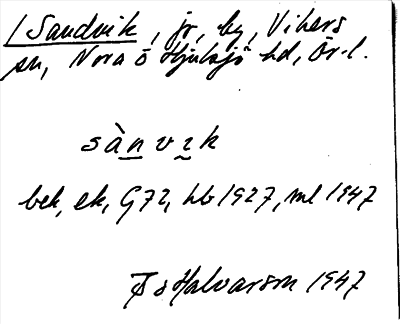 /Sandvik, jr, by, Vikers
sn, Nora o Hjulsjö hd, Ör.l.
sànvɩk
bek, ek, G72, hb 1927, ml 1947
Halvarson 1947